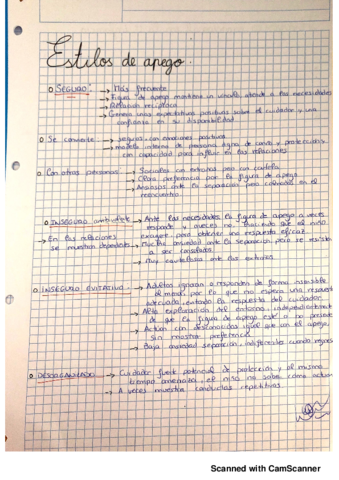 Estilos de apego.
O SEGURO: → Más frecuente
→ Figura de apego mantiene un vínculo, atiende a las necesidades
→ Relación recíproca
→ Genera unas expectativas positivas sobre el cuidador y una
confianza en su disponibilidad
O Se convierte → segura con emociones positivas
→ modelo interno de persona digna de cariño y protección
con capacidad para influir en las relaciones
O Con otras personas → Sociables con extraños pero con cautela
→ Clara preferencia por la figura de apego
→ Ansiosos ante la separación pero cálidos en el
reencuentro
O INSEGURO → Ante las necesidades la figura de apego a veces
responde y a veces no. Hace que el niño
→ En las relaciones exagere para obtener una respuesta eficaz
se muestran dependientes → Mucha ansiedad ante la separación pero se resisten
a ser consolados
→ Muy cautelosos ante los extraños
O INSEGURO EVITATIVO → Adultos ignoran o responden de forma insensible
al menor por lo que no espera una respuesta
adecuada, evitando la respuesta del cuidador
→ Alta exploración del entorno, independientemente
de que la figura de apego esté o no presente
→ Actúan con desconocidos igual que con el apego,
sin mostrar preferencia
→ Baja ansiedad separación, indiferentes cuando
O DESORGANIZADO → Cuidador fuente potencial de protección y al mismo
tiempo amenaza, el niño no sabe cómo actuar
→ A veces muestra conductas repetitivas
Scanned with CamScanner